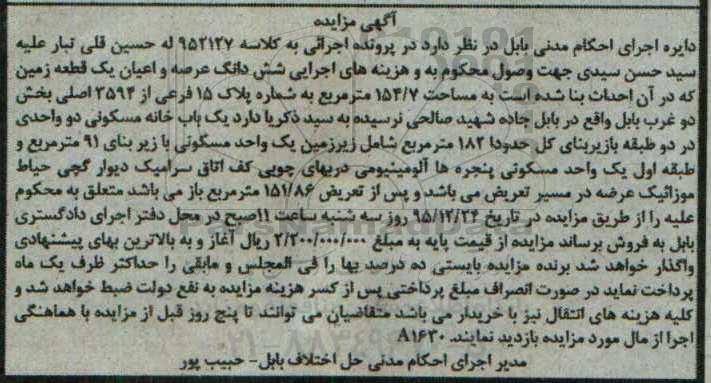 آگهی مزایده
دایره اجرای احکام مدنی بابل در نظر دارد در پرونده اجرائی به کلاسه ۹۵۲۱۲۷ له حسین قلی تبار علیه
سید حسن سیدی جهت وصول محکوم به و هزینه های اجرایی شش دانگ عرصه و اعیان یک قطعه زمین
که در آن احداث بنا شده است به مساحت ۱۵۴/۷ مترمربع به شماره پلاک ۱۵ فرعی از ۳۵۹۴ اصلی بخش
دو غرب بابل واقع در بابل جاده شهید صالحی نرسیده به سید ذکریا دارد یک باب خانه مسکونی دو واحدی
در دو طبقه بازیربنای کل حدودا ۱۸۲ مترمربع شامل زیرزمین یک واحد مسکونی با زیر بنای ۹۱ مترمربع و
طبقه اول یک واحد مسکونی پنجره ها آلومینیومی دربهای چوبی کف اتاق سرامیک دیوار گچی حیاط
موزائیک عرضه در مسیر تعریض می باشد و پس از تعریض ۱۵۱/۸۶ مترمربع باز می باشد متعلق به محکوم
علیه را از طریق مزایده در تاریخ ۹۵/۱۲/۲۴ روز سه شنبه ساعت ۱۱صبح در محل دفتر اجرای دادگستری
بابل به فروش برساند مزایده از قیمت پایه به مبلغ ۲/۲۰۰/۰۰۰/۰۰۰ ریال آغاز و به بالاترین بهای پیشنهادی
واگذار خواهد شد برنده مزایده بایستی ده درصد بها را فی المجلس و مابقی را حداکثر ظرف یک ماه
پرداخت نماید در صورت انصراف مبلغ پرداختی پس از کسر هزینه مزایده به نفع دولت ضبط خواهد شد و
کلیه هزینه های انتقال نیز با خریدار می باشد متقاضیان می توانند تا پنج روز قبل از مزایده با هماهنگی
اجرا از مال مورد مزایده بازدید نمایند. A۱۶۳۰
مدیر اجرای احکام مدنی حل اختلاف بابل- حبیب پور